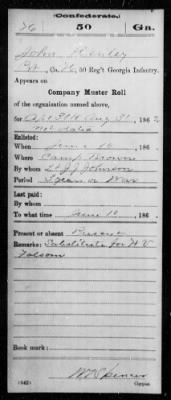 Confederate.
76 50 Ga.
John Henley
Pvt, Co. H, 50 Reg't Georgia Infantry.
Appears on
Company Muster Roll
of the organization named above,
for Apr 30 to Aug 31, 186
Enlisted:
When June 10, 186
Where Camp Brown
By whom Lt J J Johnson
Period 3 years or War
Last paid:
By whom
To what time June 10, 186
Present or absent Present
Remarks: Substitute for H V
Folsom
Book mark:
(642)
Copyist.